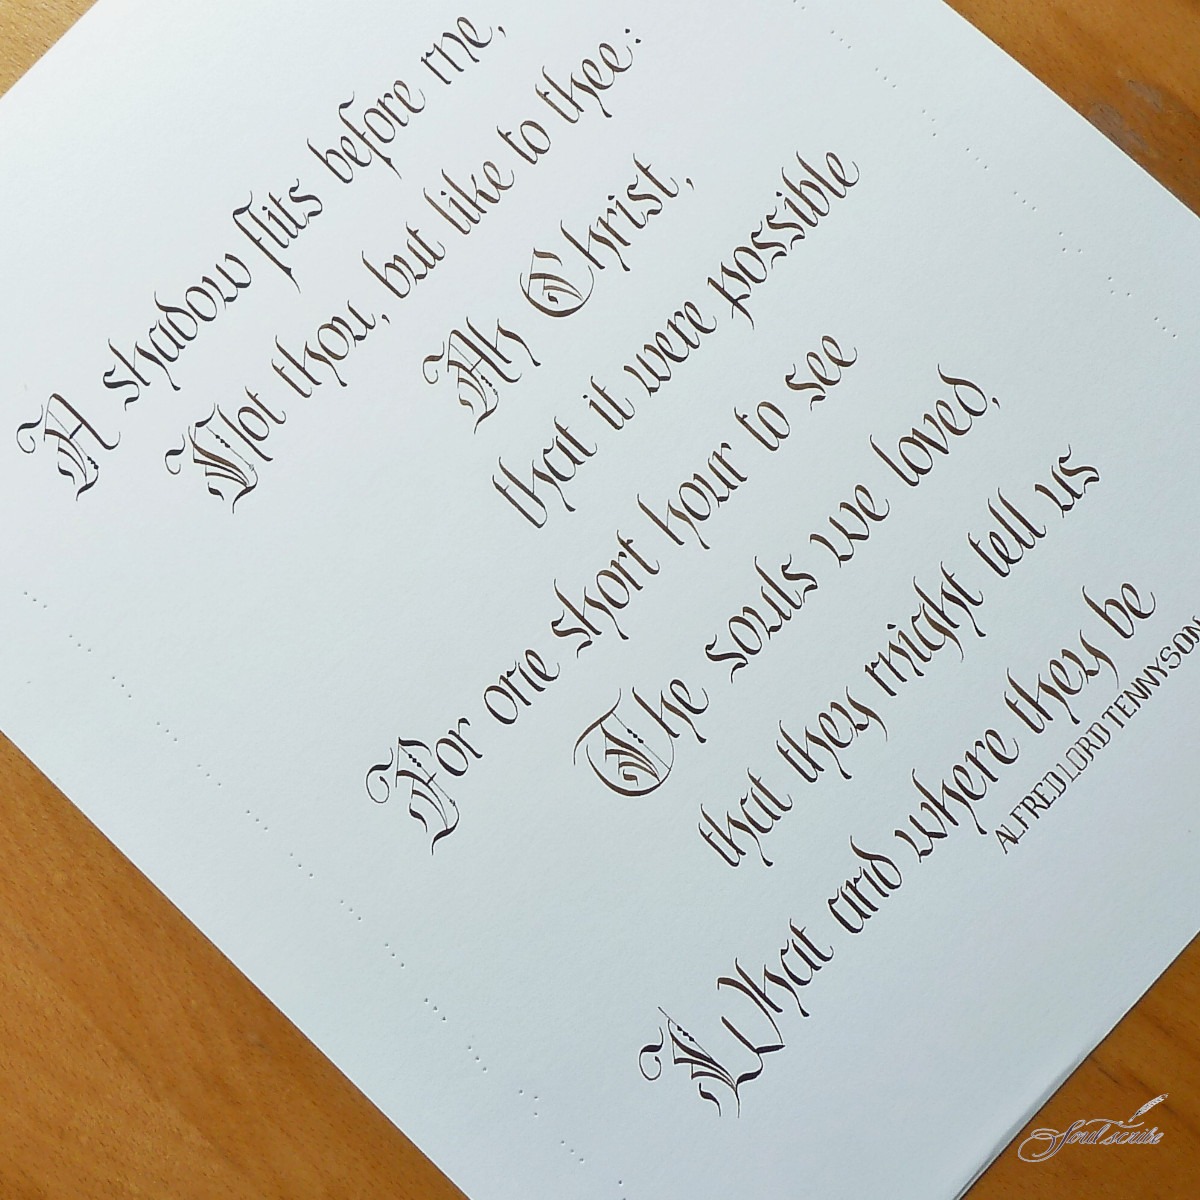 A shadow flits before me,
Not thou, but like to thee:
Ah Christ,
that it were possible
For one short hour to see
The souls we loved,
that they might tell us
What and where they be
ALFRED LORD TENNYSON
Soul scribe